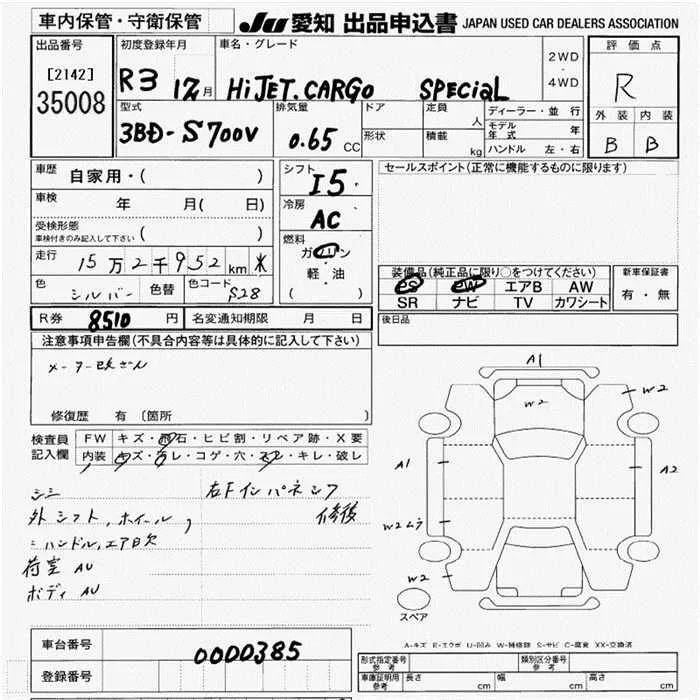 車内保管・守衛保管
JU 愛知 出品申込書 JAPAN USED CAR DEALERS ASSOCIATION
出品番号
[2142]
35008
初度登録年月
R3 12月
車名・グレード
HiJET.CARGO SPECiaL
2WD
・
4WD
評価点
R
外装 内装
B B
型式
3BD-S700V
排気量
0.65 CC
ドア
形状
定員 人
積載 kg
ディーラー・並行
モデル年式 年
ハンドル 左・右
車歴 自家用・( )
車検 年 月( 日)
受検形態
車検付きのみ記入して下さい ( )
走行 15万2千952km
色 シルバー 色替 色コード S28
シフト
I5
冷房
AC
燃料
ガソリン
軽・油
( )
セールスポイント(正常に機能するものに限ります)
装備品(純正品に限り○をつけてください)
PS PW エアB AW
SR ナビ TV カワシート
新車保証書
有・無
R券 8510円 名変通知期限 月 日
後日品
注意事項申告欄(不具合内容等は具体的に記入して下さい)
メーター改ざん
修復歴 有 〔箇所 〕
検査員
記入欄
FW キズ・飛石・ヒビ割・リペア跡・X要
内装 キズ・汚レ・コゲ・穴・スレ・キレ・破レ
シミ
外シフト,ホイール,
ハンドル,エアB欠
荷室 AU
ボディ AU
右Fインパネシフ
修復
A1
W2
W2
A1
A2
W2ムラ
W2
スペア
A-キズ E-エクボ U-凹み W-補修跡 S-サビ C-腐食 XX-交換済
車台番号 0000385
登録番号
形式指定番号
参考
類別区分番号
参考
車庫証明用
参考
長さ cm 幅 cm 高さ cm